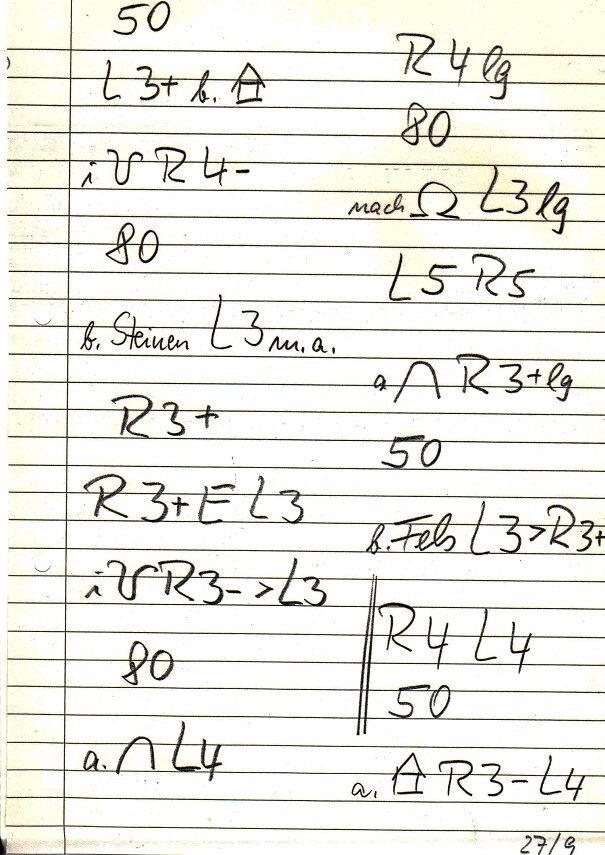 50
L3+ b.
i R4-
80
b. Steinen L3 m.a.
R3+
R3+ E L3
i R3- > L3
80
a. ∩ L4
R4 lg
80
nach Ω L3 lg
L5 R5
a ∩ R3+ lg
50
b. Fels L3 > R3+
R4 L4
50
a. R3- L4
27/9